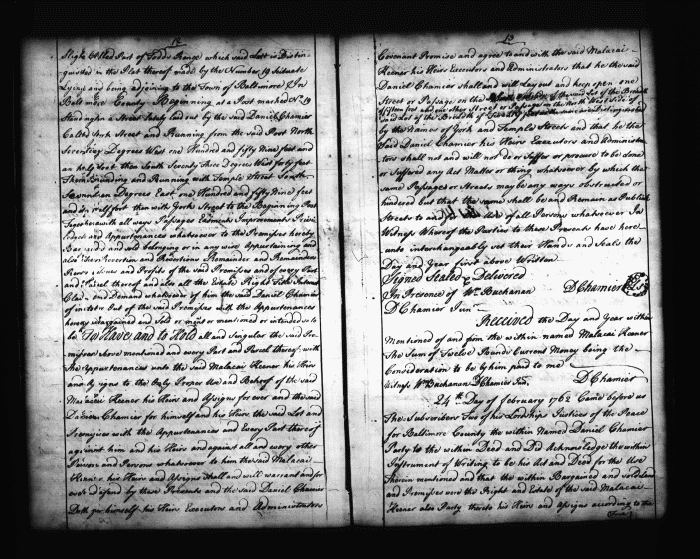 12
Right Called Part of Todds Range which said Lot is Distin-
guished in the Plat thereof made by the Number 19 Situate
Lying and being adjoining to the Town of Baltimore In
Baltimore County Beginning at a Post marked No. 19
Standing in a Street lately laid out by the said Daniel Chamier
Called York Street and Running from the said Post North
Seventeen Degrees West one Hundred and fifty Nine feet and
an half foot then South Seventy three Degrees West forty feet
then Bounding and Running with Temple Street South
Seventeen Degrees East one Hundred and fifty Nine feet
and an half foot then with York Street to the Beginning Post
Together with all ways Passages Easments Improvements Privi
ledges and Appurtenances whatsoever to the Premises hereby
Bargained and sold belonging or in any wise Appurtaining and
also the Reversion and Reversions Remainder and Remainders
Rents Issues and Profits of the said Premises and of every Part
and Parcel thereof and also all the Estate Right Title Interest
Claim and Demand whatsoever of him the said Daniel Chamier
of in to or out of the said Premises with the Appurtenances
hereby Bargained and Sold or meant or mentioned or intended so to
be To Have and to Hold all and Singular the said Pre-
mises above mentioned and every Part and Parcel thereof with
the Appurtenances unto the said Malacai Keener his Heirs
and Assigns to the Only Proper Use and Behoof of the said
Malacai Keener his Heirs and Assigns for ever and the said
Daniel Chamier for himself and his Heirs the said Lot and
Premises with the Appurtenances and Every Part thereof
against him and his Heirs and against all and every other
Person and Persons whatsoever to him the said Malacai
Keener his Heirs and Assigns Shall and will warrant and for
ever Defend by these Presents and the said Daniel Chamier
Doth for himself his Heirs Executors and Administrators
13
Covenant Promise and agree to and with the said Malacai
Keener his Heirs Executors and Administrators that he the said
Daniel Chamier shall and will Lay out and keep open one
Street or Passage on the of the said Lot of the Breadth
of fifteen feet and one other Street or Passage on the North West side of
said Lot of the Breadth of
by the Names of York and Temple Streets and that he the
Said Daniel Chamier his Heirs Executors and Administra-
tors shall not and will not do or Suffer or procure to be done
or Suffered any Act Matter or thing whatsoever by which the
same Passages or Streets may be any ways obstructed or
hindered but that the same shall be and Remain as Publick
Streets to and of all Persons whatsoever In
Witness Whereof the Parties to these Presents have here
unto interchangeably set their Hands and Seals the
Day and Year first above Written
Signed Sealed & Delivered
In Presence of Wm. Buchanan D Chamier
D Chamier Jun
Received the Day and Year within
Mentioned of and from the within named Malacai Keener
The Sum of Twelve Pounds Current Money being the
Consideration to be by him paid to me
Witness Wm. Buchanan D Chamier Jun. D Chamier
24th. Day of February 1762 Came before us
The Subscribers Two of his Lordships Justices of the Peace
for Baltimore County the within Named Daniel Chamier
Party to the within Deed and Did Acknowledge the within
Instrument of Writing to be his Act and Deed for the Use
therein mentioned and that the within Bargained and sold Land
and Premises were the Right and Estate of the said Malacai
Keener also Party thereto his Heirs and Assigns according to the